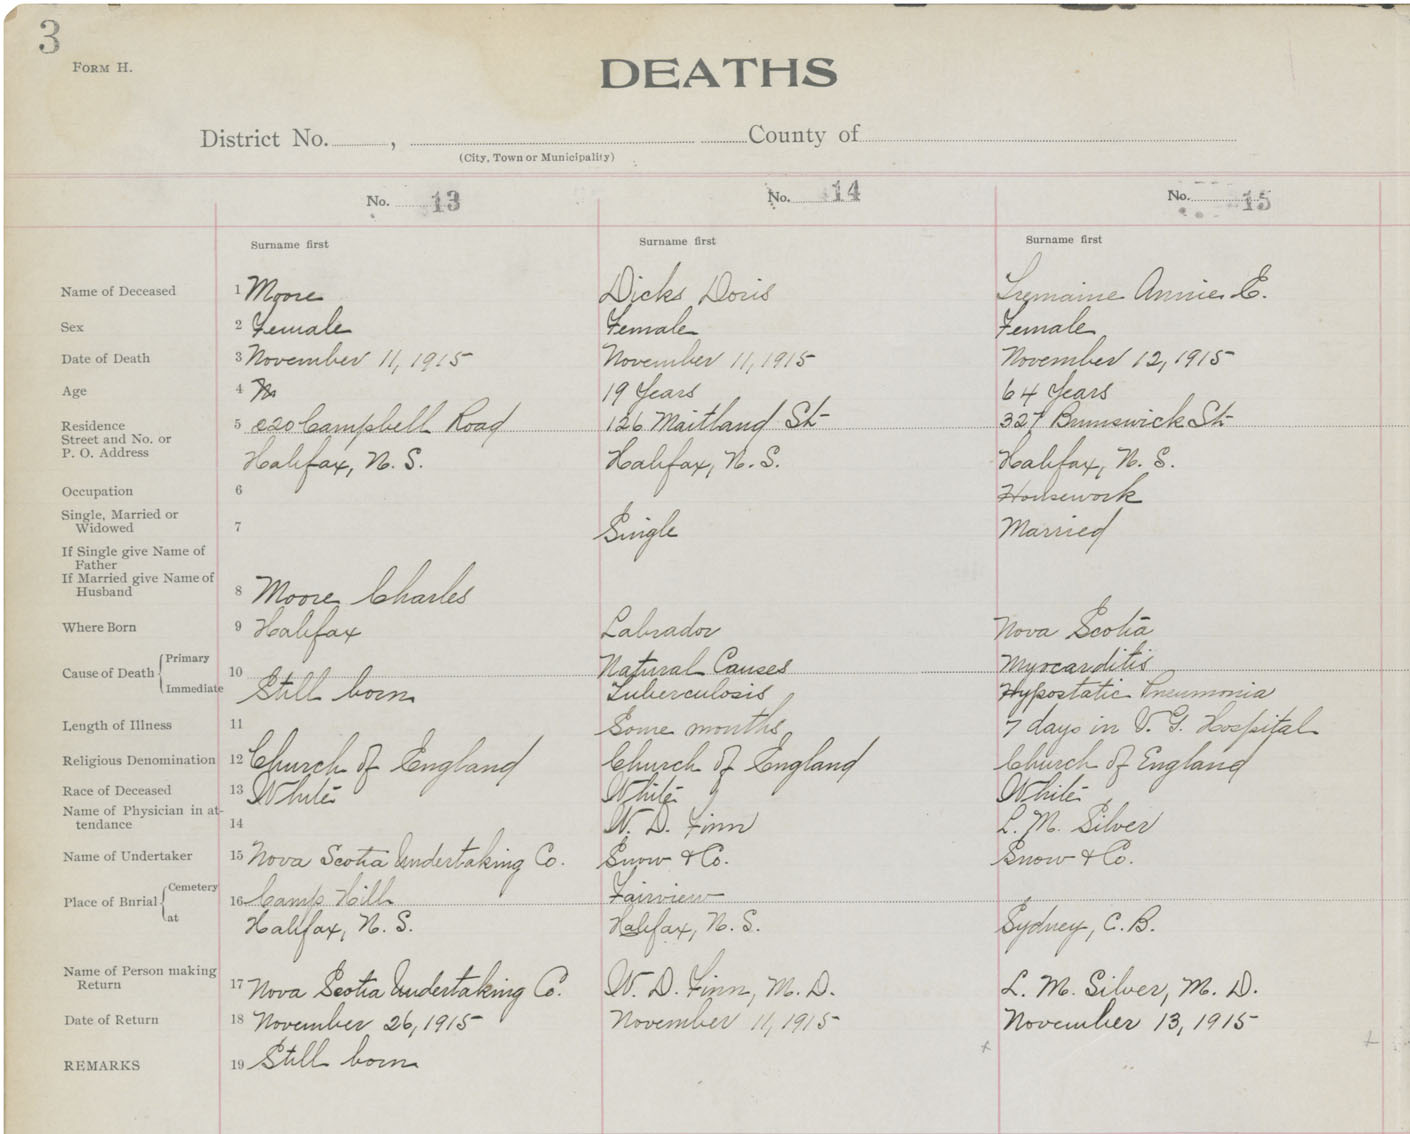 3
FORM H.
DEATHS
District No. , County of
(City, Town or Municipality)
No. 13 No. 14 No. 15
Surname first Surname first Surname first
Name of Deceased 1 Moore Dicks Doris Tremaine Annie E.
Sex 2 Female Female Female
Date of Death 3 November 11, 1915 November 11, 1915 November 12, 1915
Age 4 19 Years 64 Years
Residence 5 820 Campbell Road 126 Maitland St 327 Brunswick St
Street and No. or
P. O. Address Halifax, N. S. Halifax, N. S. Halifax, N. S.
Occupation 6 Housework
Single, Married or
Widowed 7 Single Married
If Single give Name of
Father
If Married give Name of
Husband 8 Moore Charles
Where Born 9 Halifax Labrador Nova Scotia
Cause of Death Primary 10 Natural Causes Myocarditis
Immediate Still born Tuberculosis Hypostatic Pneumonia
Length of Illness 11 Some months 7 days in V. G. Hospital
Religious Denomination 12 Church of England Church of England Church of England
Race of Deceased 13 White White White
Name of Physician in at-
tendance 14 W. D. Finn L. M. Silver
Name of Undertaker 15 Nova Scotia Undertaking Co. Snow & Co. Snow & Co.
Place of Burial Cemetery 16 Camp Hill Fairview
at Halifax, N. S. Halifax, N. S. Sydney, C. B.
Name of Person making
Return 17 Nova Scotia Undertaking Co. W. D. Finn, M. D. L. M. Silver, M. D.
Date of Return 18 November 26, 1915 November 11, 1915 November 13, 1915
REMARKS 19 Still born